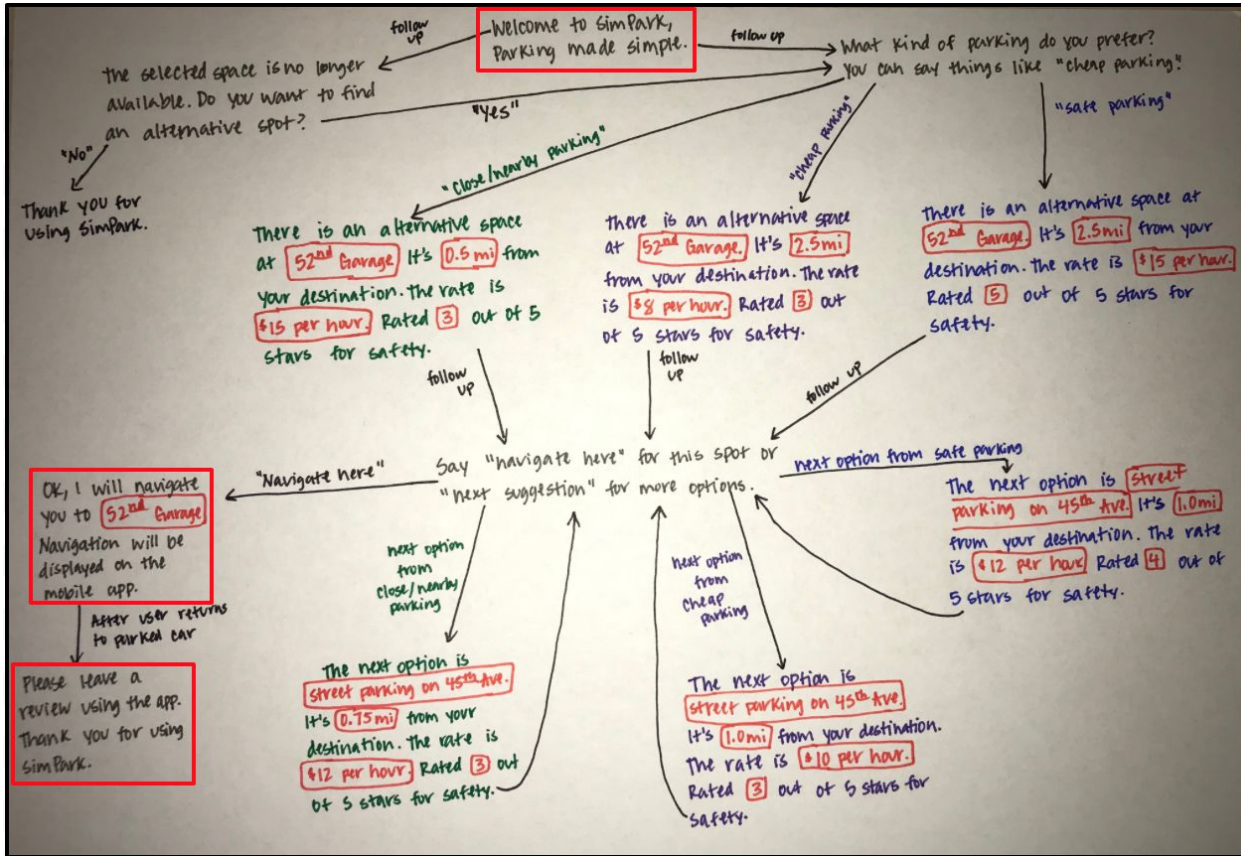 Welcome to SimPark,
Parking made simple.
follow
up
follow up
The selected space is no longer
available. Do you want to find
an alternative spot?
What kind of parking do you prefer?
You can say things like "cheap parking".
"Yes"
"No"
Thank you for
using SimPark.
"Close/nearby parking"
"Cheap parking"
"safe parking"
There is an alternative space
at 52nd Garage. It's 0.5 mi from
your destination. The rate is
$15 per hour. Rated 3 out of 5
stars for safety.
There is an alternative space
at 52nd Garage. It's 2.5mi
from your destination. The rate
is $8 per hour. Rated 3 out
of 5 stars for safety.
There is an alternative space at
52nd Garage. It's 2.5mi from your
destination. The rate is $15 per hour.
Rated 5 out of 5 stars for
safety.
follow
up
follow
up
follow up
Say "navigate here" for this spot or
"next suggestion" for more options.
"Navigate here"
OK, I will navigate
you to 52nd Garage
Navigation will be
displayed on the
mobile app.
After user returns
to parked car
Please leave a
review using the app.
Thank you for using
SimPark.
next option
from
close/nearby
parking
next option
from
cheap
parking
next option from safe parking
The next option is
street parking on 45th Ave.
It's 0.75mi from your
destination. The rate is
$12 per hour. Rated 3 out
of 5 stars for safety.
The next option is
street parking on 45th Ave.
It's 1.0mi from your destination.
The rate is $10 per hour.
Rated 3 out of 5 stars for
safety.
The next option is street
parking on 45th Ave. It's 1.0mi
from your destination. The rate
is $12 per hour Rated 4 out of
5 stars for safety.